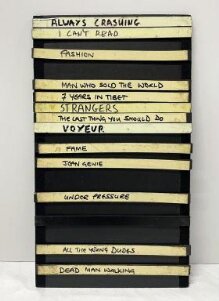 ALWAYS CRASHING
I CAN'T READ
FASHION
MAN WHO SOLD THE WORLD
7 YEARS IN TIBET
STRANGERS
THE LAST THING YOU SHOULD DO
VOYEUR
FAME
JEAN GENIE
UNDER PRESSURE
ALL THE YOUNG DUDES
DEAD MAN WALKING